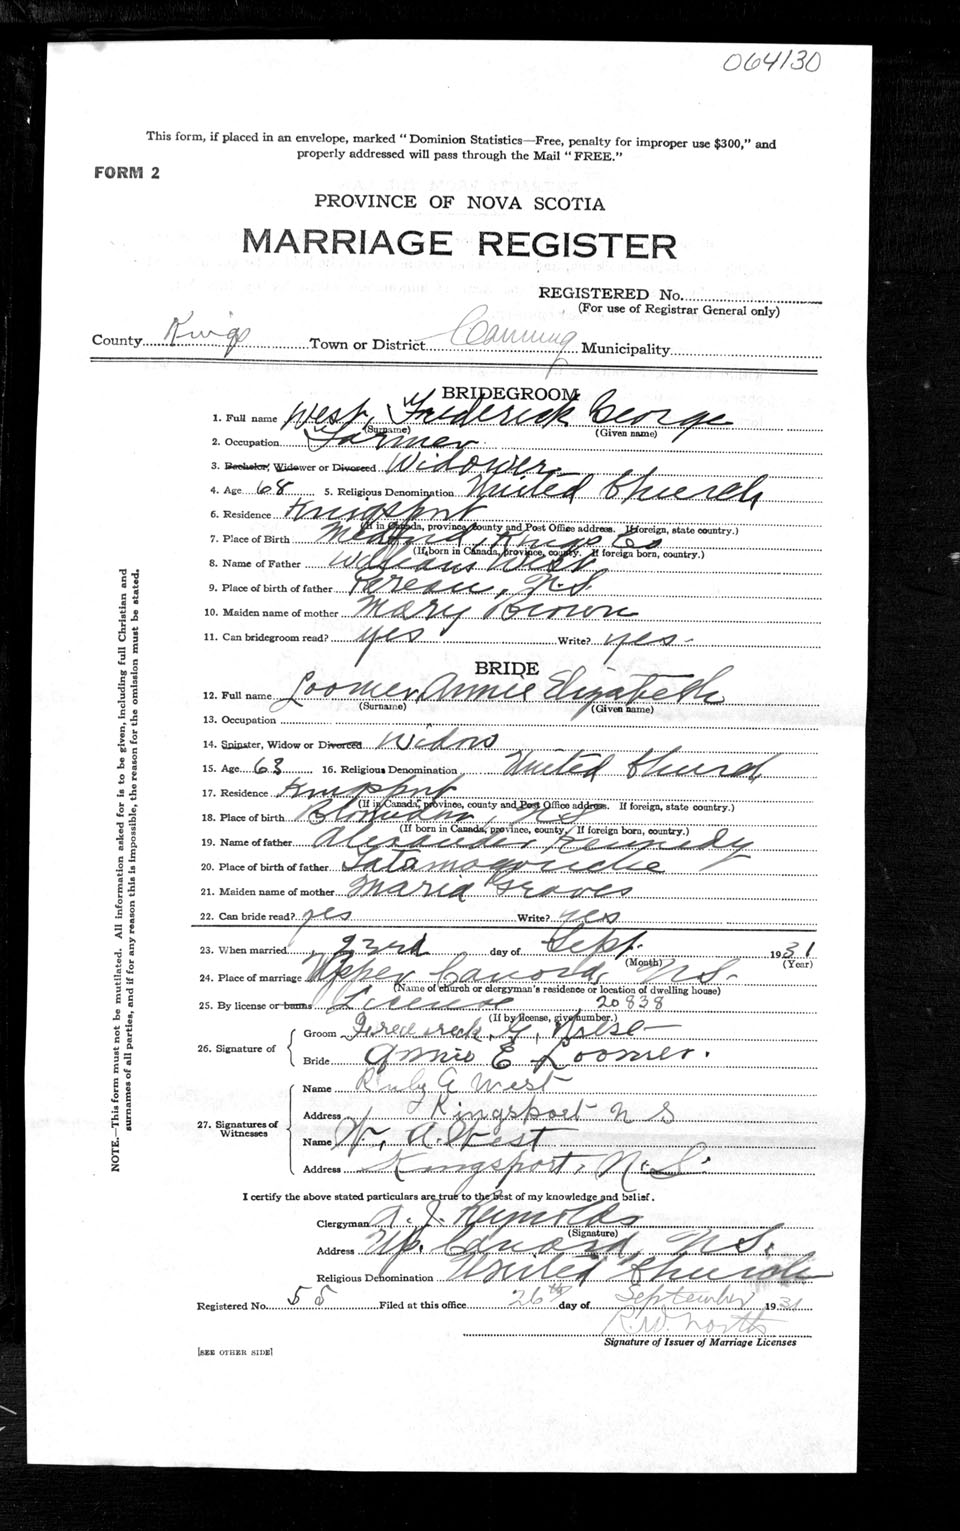 064130
This form, if placed in an envelope, marked "Dominion Statistics—Free, penalty for improper use $300," and
properly addressed will pass through the Mail "FREE."
FORM 2
PROVINCE OF NOVA SCOTIA
MARRIAGE REGISTER
REGISTERED No.
(For use of Registrar General only)
County Kings Town or District Canning Municipality
BRIDEGROOM
1. Full name West, Frederick George
(Surname) (Given name)
2. Occupation Farmer
3. Bachelor, Widower or Divorced Widower
4. Age 68 5. Religious Denomination United Church
6. Residence Kingsport
(If in Canada, province, county and Post Office address. If foreign, state country.)
7. Place of Birth Medford, Kings Co
(If born in Canada, province, county. If foreign born, country.)
8. Name of Father William West
9. Place of birth of father Pereau, N.S
10. Maiden name of mother Mary Brown
11. Can bridegroom read? yes Write? yes
BRIDE
12. Full name Loomer, Annie Elizabeth
(Surname) (Given name)
13. Occupation
14. Spinster, Widow or Divorced Widow
15. Age 63 16. Religious Denomination United Church
17. Residence Kingsport
(If in Canada, province, county and Post Office address. If foreign, state country.)
18. Place of birth Blomidon, N.S
(If born in Canada, province, county, If foreign born, country.)
19. Name of father Alexander Kennedy
20. Place of birth of father Tatamagouche
21. Maiden name of mother Maria Graves
22. Can bride read? yes Write? yes
23. When married 23rd day of Sept. 1931
(Month) (Year)
24. Place of marriage Upper Canard, N.S.
(Name of church or clergyman's residence or location of dwelling house)
25. By license or banns License 20838
(If by license, give number.)
26. Signature of
Groom Frederick G,
Bride Annie E Loomer.
27. Signatures of Witnesses
Name Ruby A West
Address Kingsport N S
Name A. West
Address Kingsport, N.S.
I certify the above stated particulars are true to the best of my knowledge and belief.
Clergyman A. J. Reynolds
(Signature)
Address Up. Canard, N.S.
Religious Denomination United Church
Registered No. 55 Filed at this office 26th day of September 1931
R.W. North
Signature of Issuer of Marriage Licenses
[SEE OTHER SIDE]
NOTE.—This form must not be mutilated. All information asked for is to be given, including full Christian and
surnames of all parties, and if for any reason this is impossible, the reason for the omission must be stated.